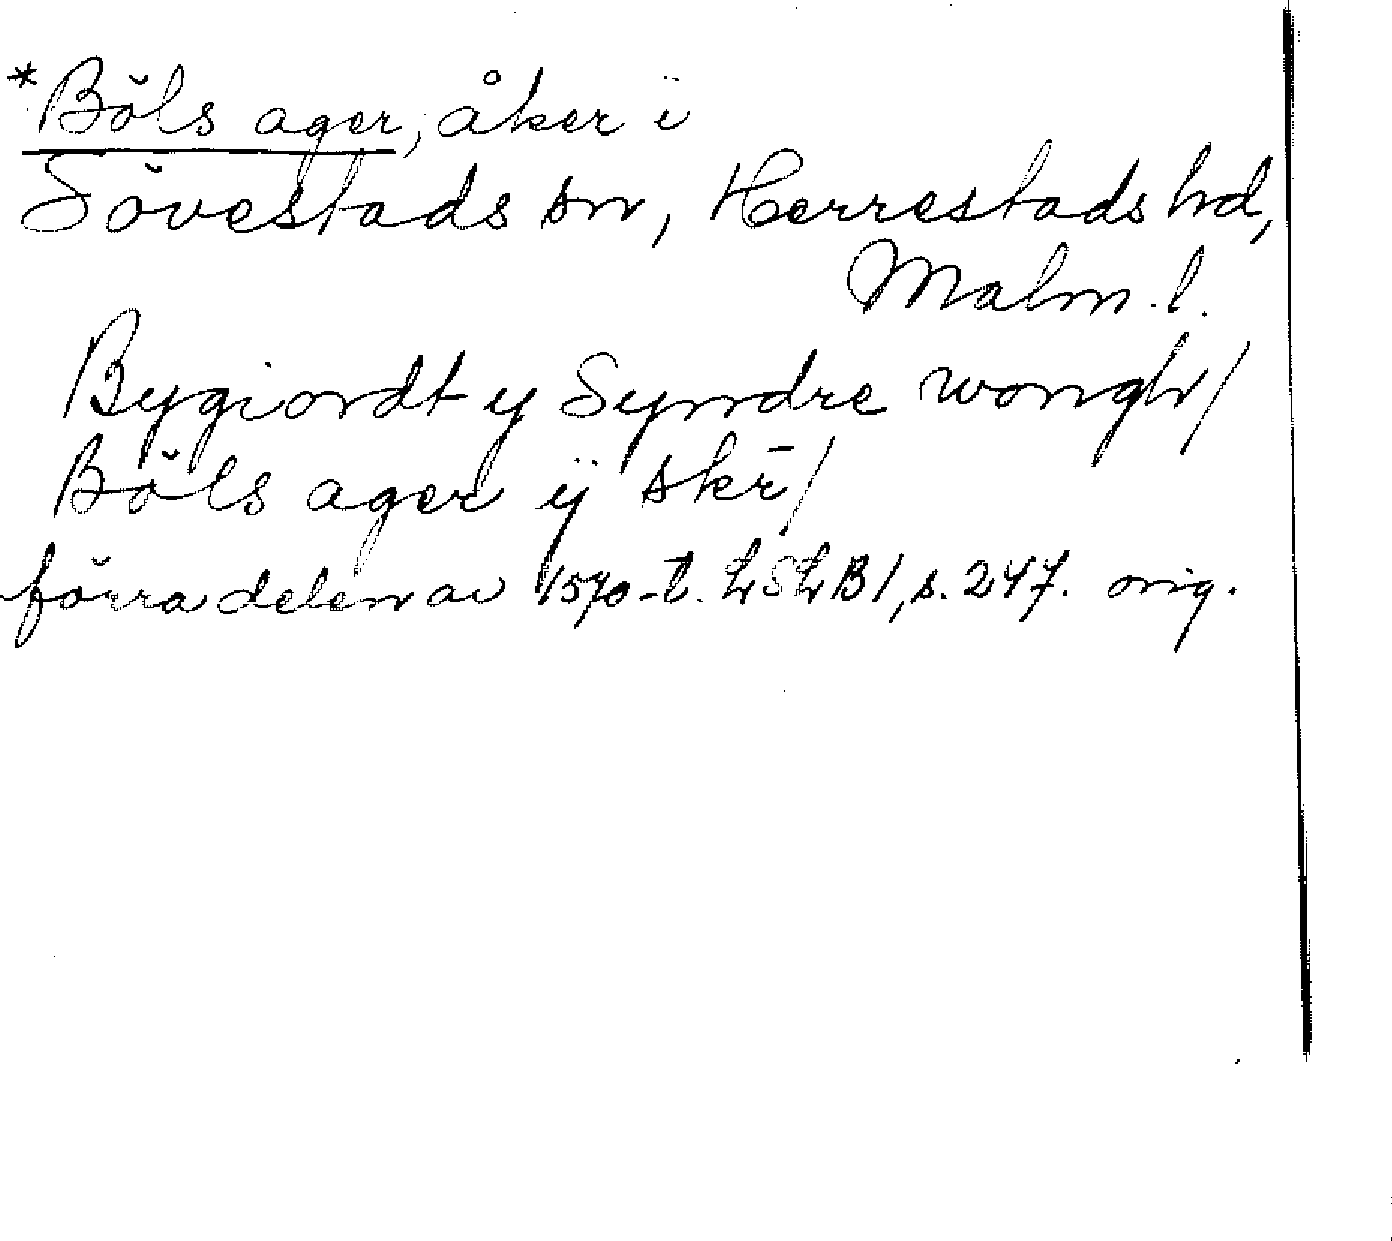 *Böls ager, åker i
Sövestads sn, Herrestads hd,
Malm. l.
Bygiordt y Syndre wongh/
Böls ager ÿ skr̄/
förra delen av 1570-t. LSLB1, s. 247. orig.